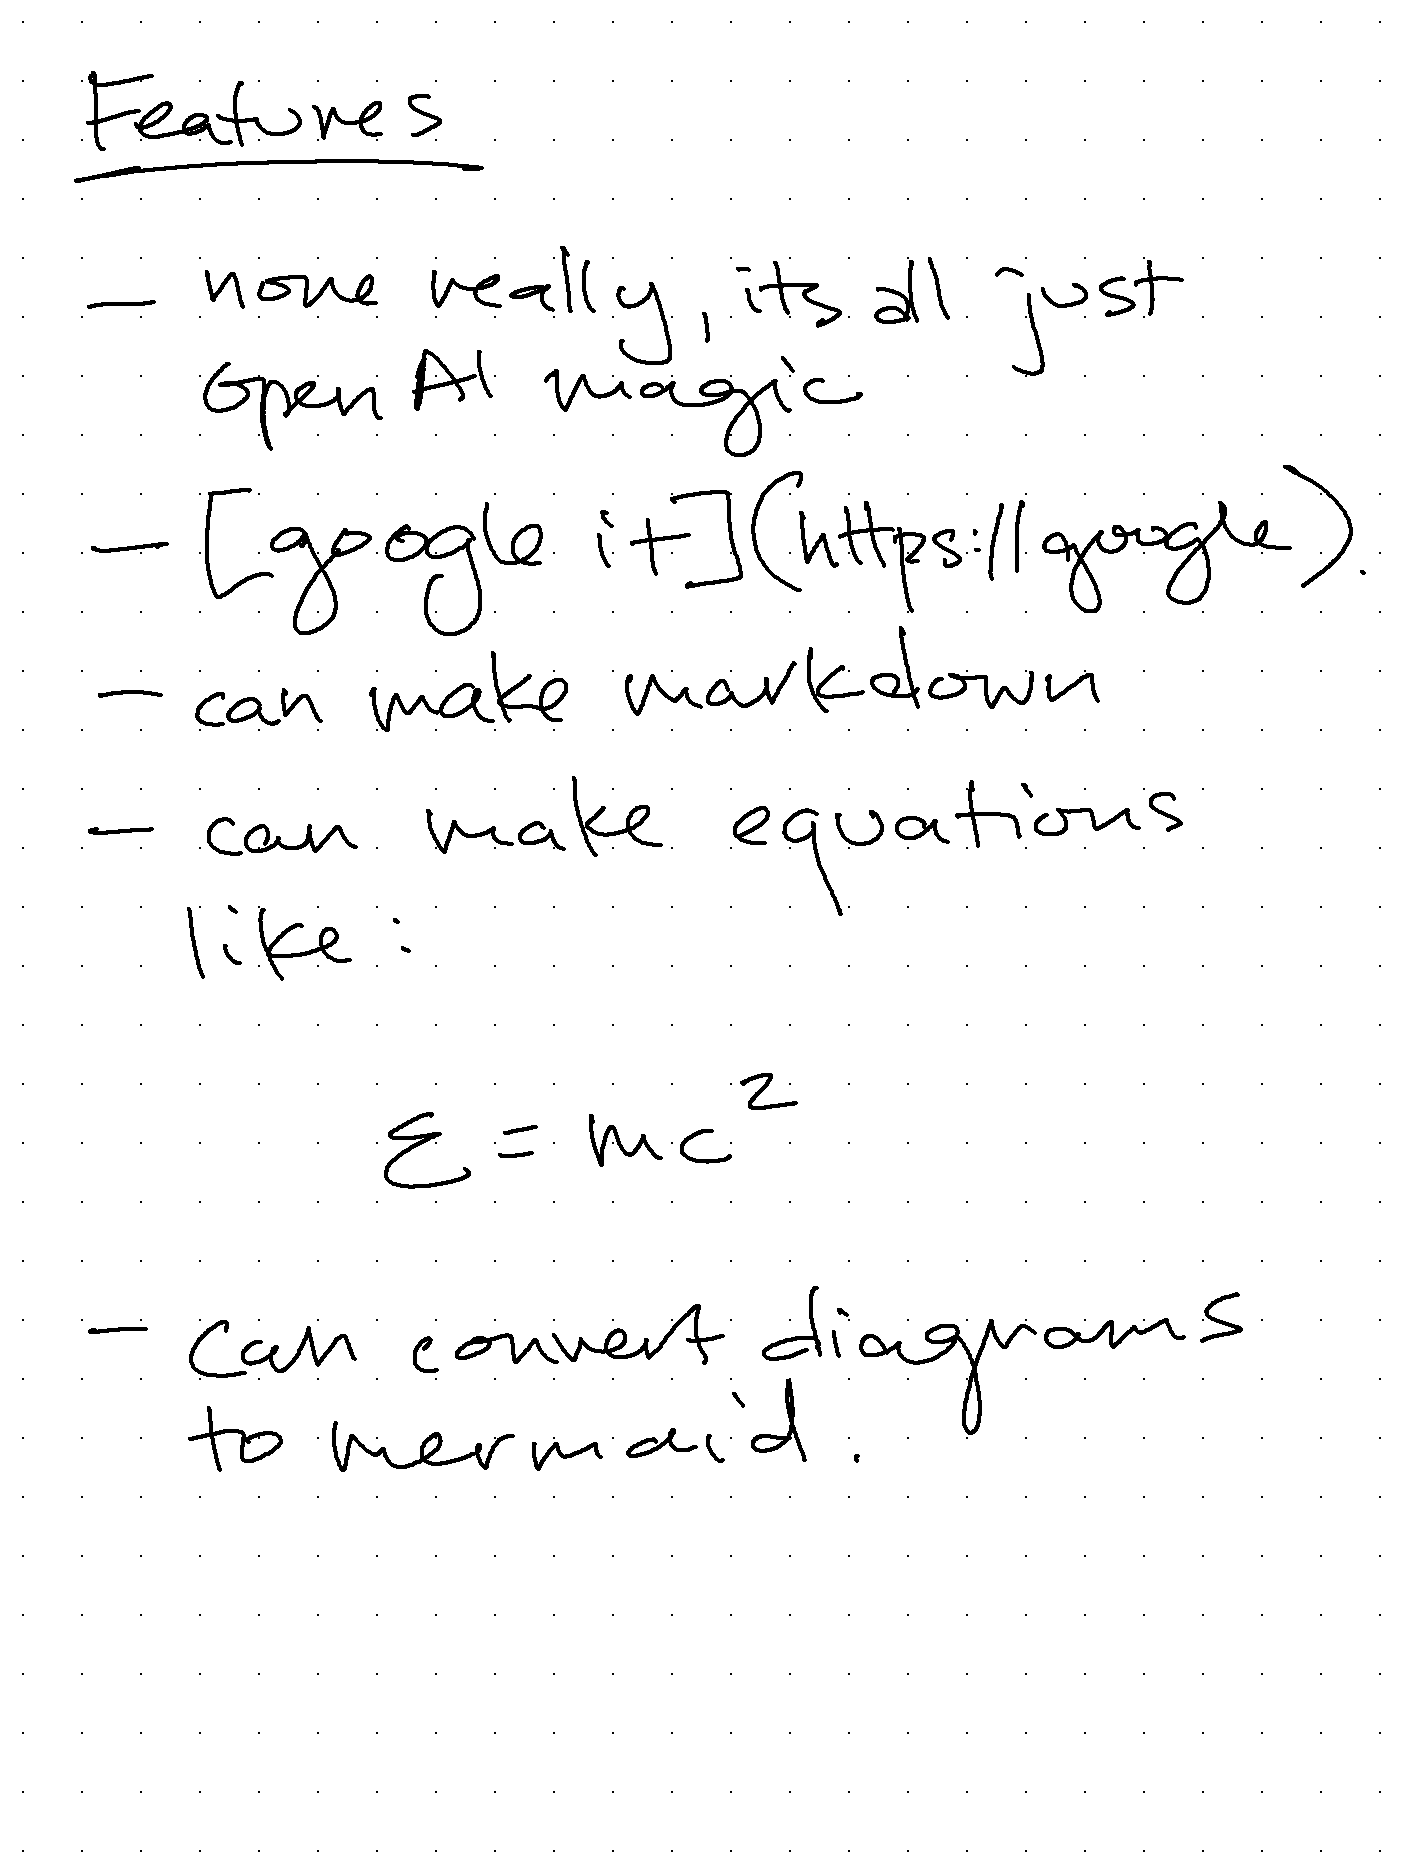 Features
- none really, its all just
OpenAI magic
- [google it](https://google).
- can make markdown
- can make equations
like:
E = mc²
- can convert diagrams
to mermaid.